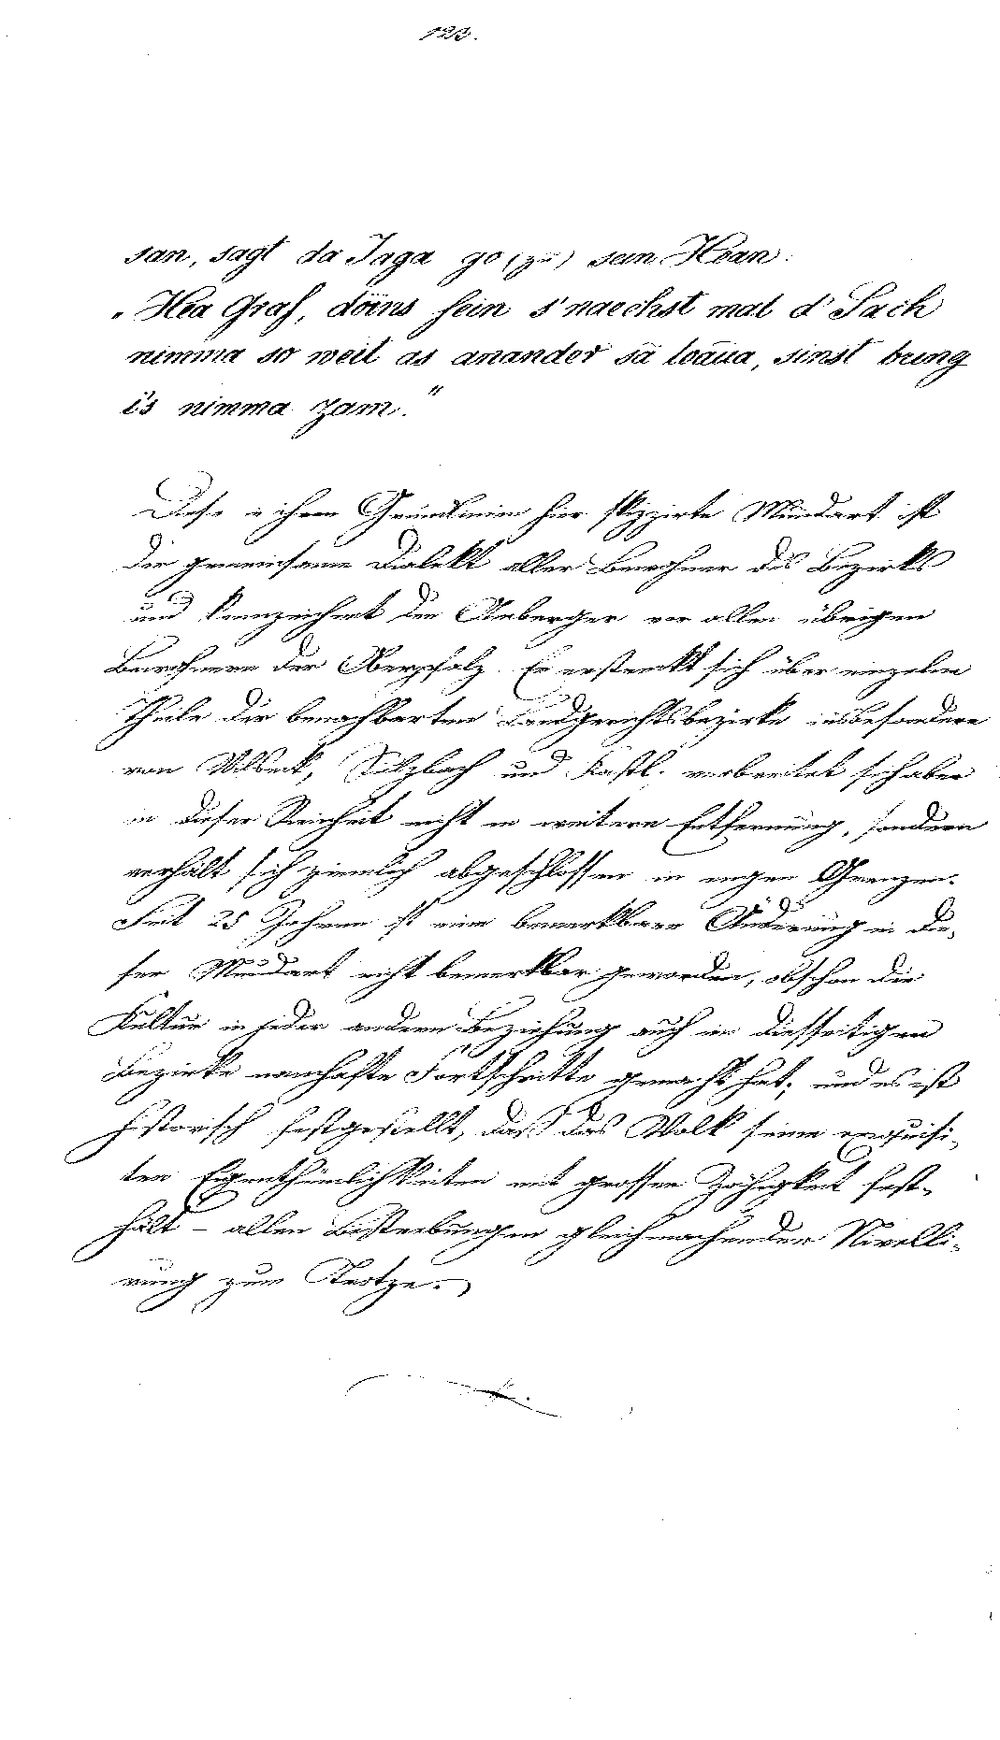 123.
san, sagt da Jaga go (zu) sein Hean:
„Hea Graf, döins fein s'naechst mal d' Sach
nimma so weit as anander sä loäua, sinst bring
i's nimma zam."
Diese in ihren Grundlinien hier skizzirte Mundart ist
der gemeinsame Dialekt aller Bewohner des Bezirks
und kennzeichnet den Amberger vor allen übrigen
Bewohnern der Oberpfalz. Er erstreckt sich über einzelne
Theile der benachbarten Landgerichtsbezirke insbesondere
von Vilseck, Sulzbach und Kastl, verbreitet sich aber
in dieser Reinheit nicht in weitere Entfernung, sondern
verhält sich ziemlich abgeschlossen in engen Grenzen.
Seit 25 Jahren ist eine bemerkbare Änderung in die-
ser Mundart nicht bemerkbar geworden, obschon die
Kultur in jeder andern Beziehung auch im diesseitigen
Bezirke namhafte Fortschritte gemacht hat; und es ist
historisch festgestellt, daß das Volk seine exquisi-
ten Eigenthümlichkeiten mit grosser Zähigkeit fest-
hält – allen Bestrebungen gleichmachender Nivelli-
rung zum Trotze.